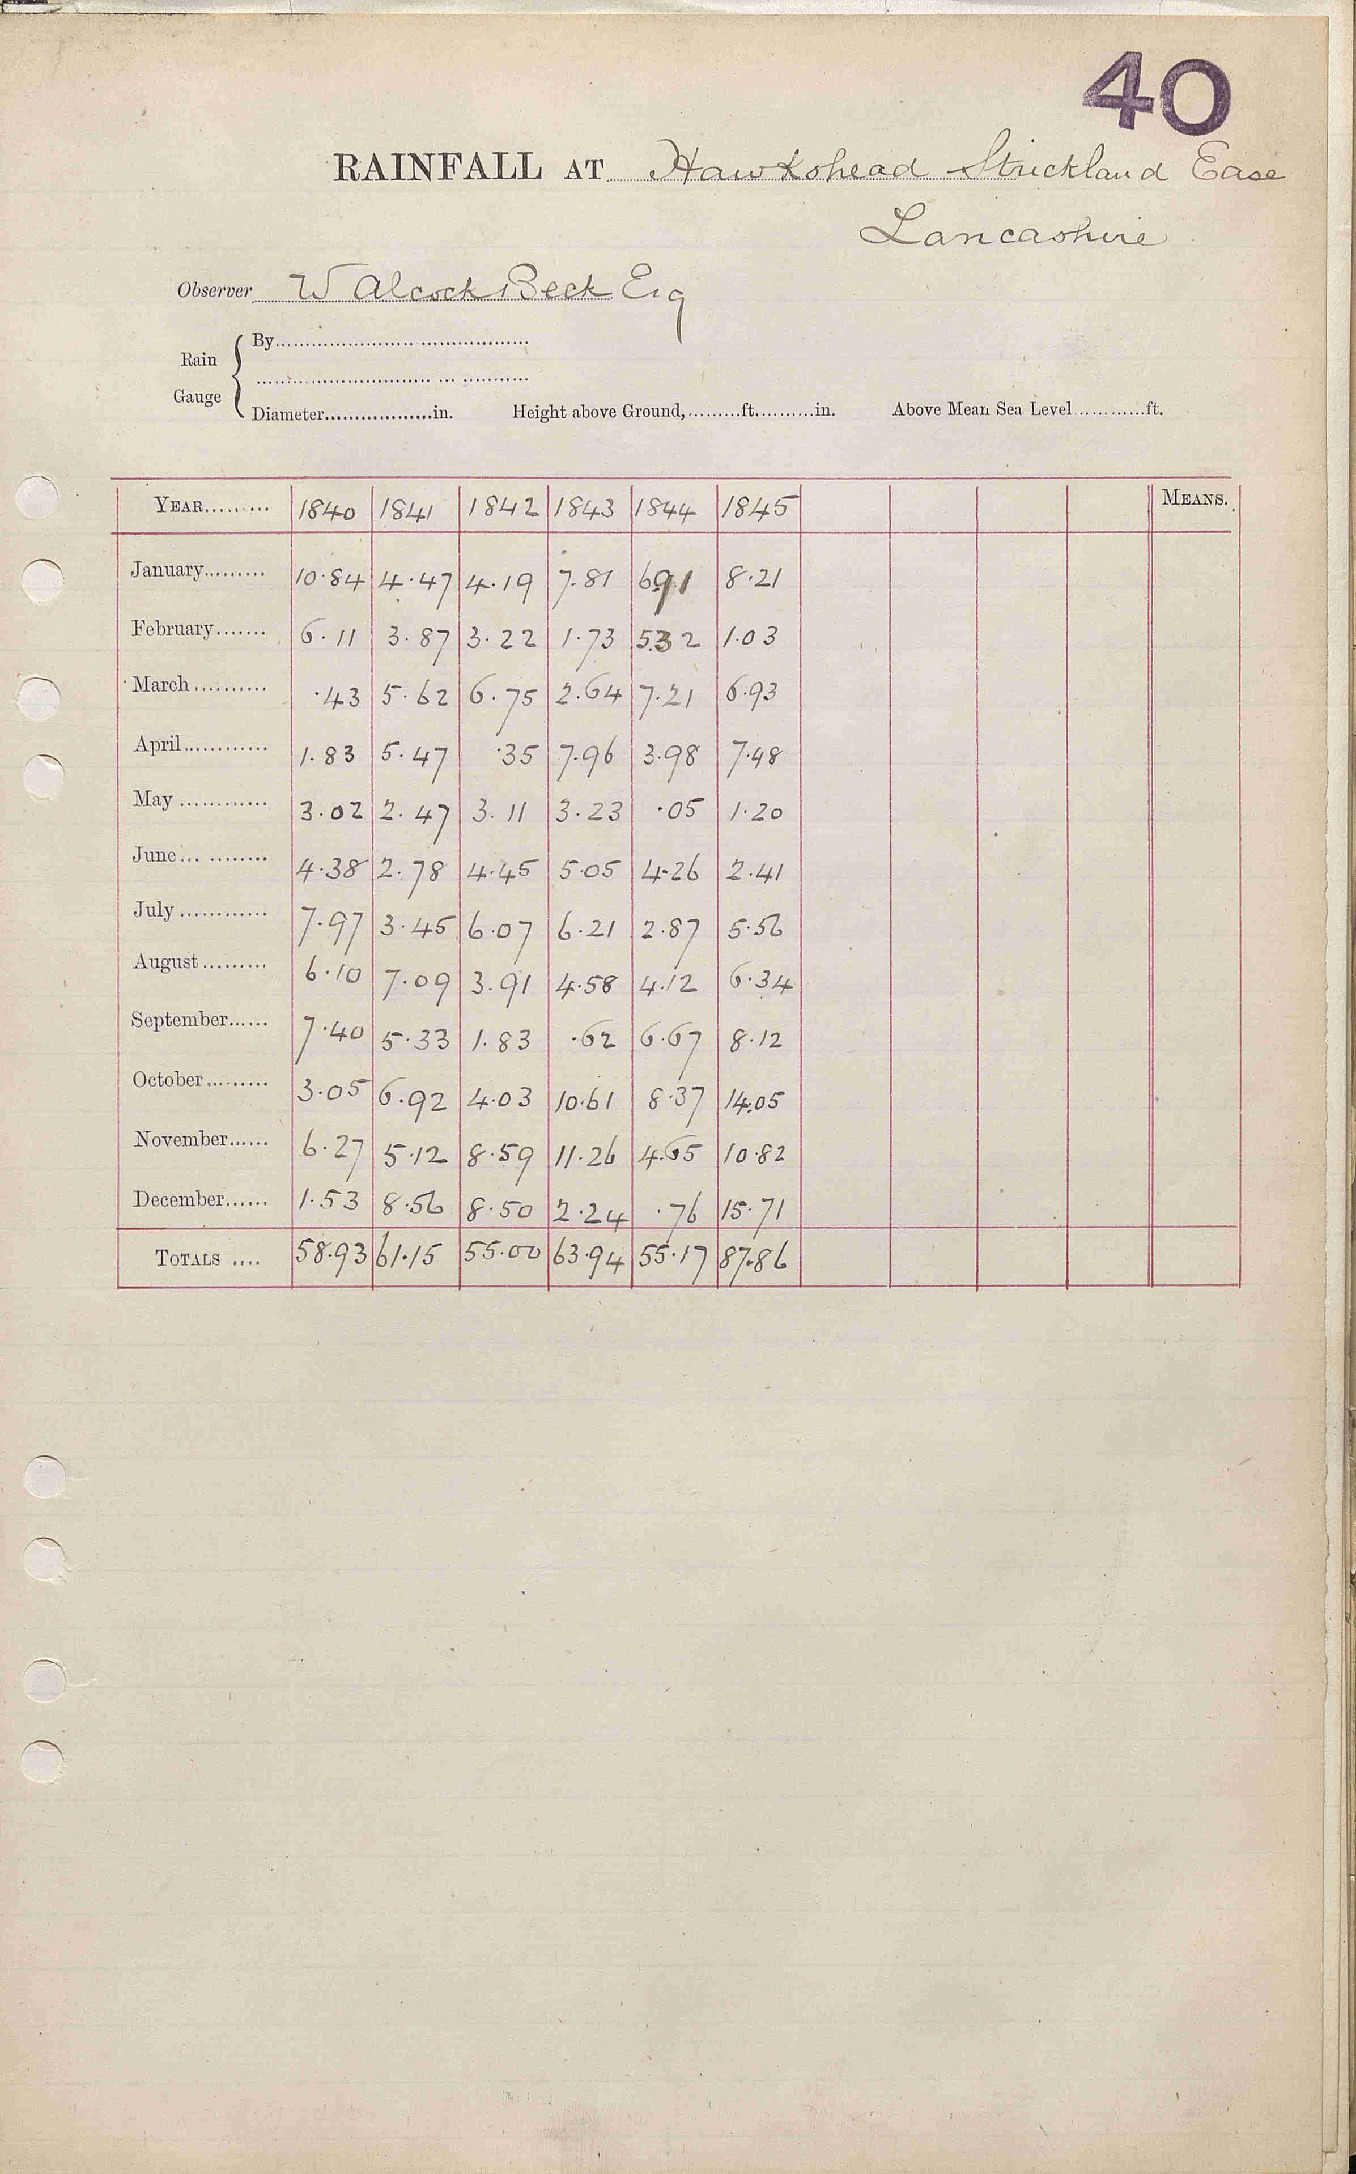 40
RAINFALL AT Hawkshead Strickland Ease
Lancashire
Observer W Alcock Beck Esq
Rain Gauge { By
Diameter in. Height above Ground, ft. in. Above Mean Sea Level ft.
YEAR 1840 1841 1842 1843 1844 1845 MEANS.
January 10.84 4.47 4.19 7.81 6.91 8.21
February 6.11 3.87 3.22 1.73 5.32 1.03
March .43 5.62 6.75 2.64 7.21 6.93
April 1.83 5.47 .35 7.96 3.98 7.48
May 3.02 2.47 3.11 3.23 .05 1.20
June 4.38 2.78 4.45 5.05 4.26 2.41
July 7.97 3.45 6.07 6.21 2.87 5.56
August 6.10 7.09 3.91 4.58 4.12 6.34
September 7.40 5.33 1.83 .62 6.67 8.12
October 3.05 6.92 4.03 10.61 8.37 14.05
November 6.27 5.12 8.59 11.26 4.65 10.82
December 1.53 8.56 8.50 2.24 .76 15.71
TOTALS 58.93 61.15 55.00 63.94 55.17 87.86